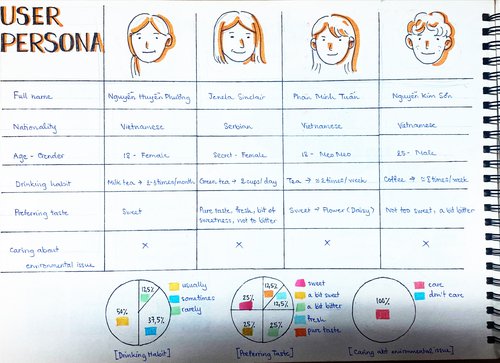 USER
PERSONA
Full name
Nguyễn Huyền Phương
Jenela Sinclair
Phan Minh Tuấn
Nguyễn Kim Sơn
Nationality
Vietnamese
Serbian
Vietnamese
Vietnamese
Age - Gender
18 - Female
Secret - Female
18 - Meo Meo
25 - Male
Drinking habit
Milk tea → 2-3 times/month
Green tea → 2 cups/day
Tea → ≈ 2 times/week
Coffee → ≈ 2 times/week
Preferring taste
Sweet
Pure taste, fresh, bit of
sweetness, not to bitter
Sweet → Flower (Daisy)
Not too sweet, a bit bitter
Caring about
environmental issue
×
×
×
×
12,5%
50%
37,5%
usually
sometimes
rarely
[Drinking Habit]
25%
12,5%
12,5%
25%
25%
sweet
a bit sweet
a bit bitter
fresh
pure taste
[Preferring Taste]
100%
care
don't care
[Caring abt environmental issue]